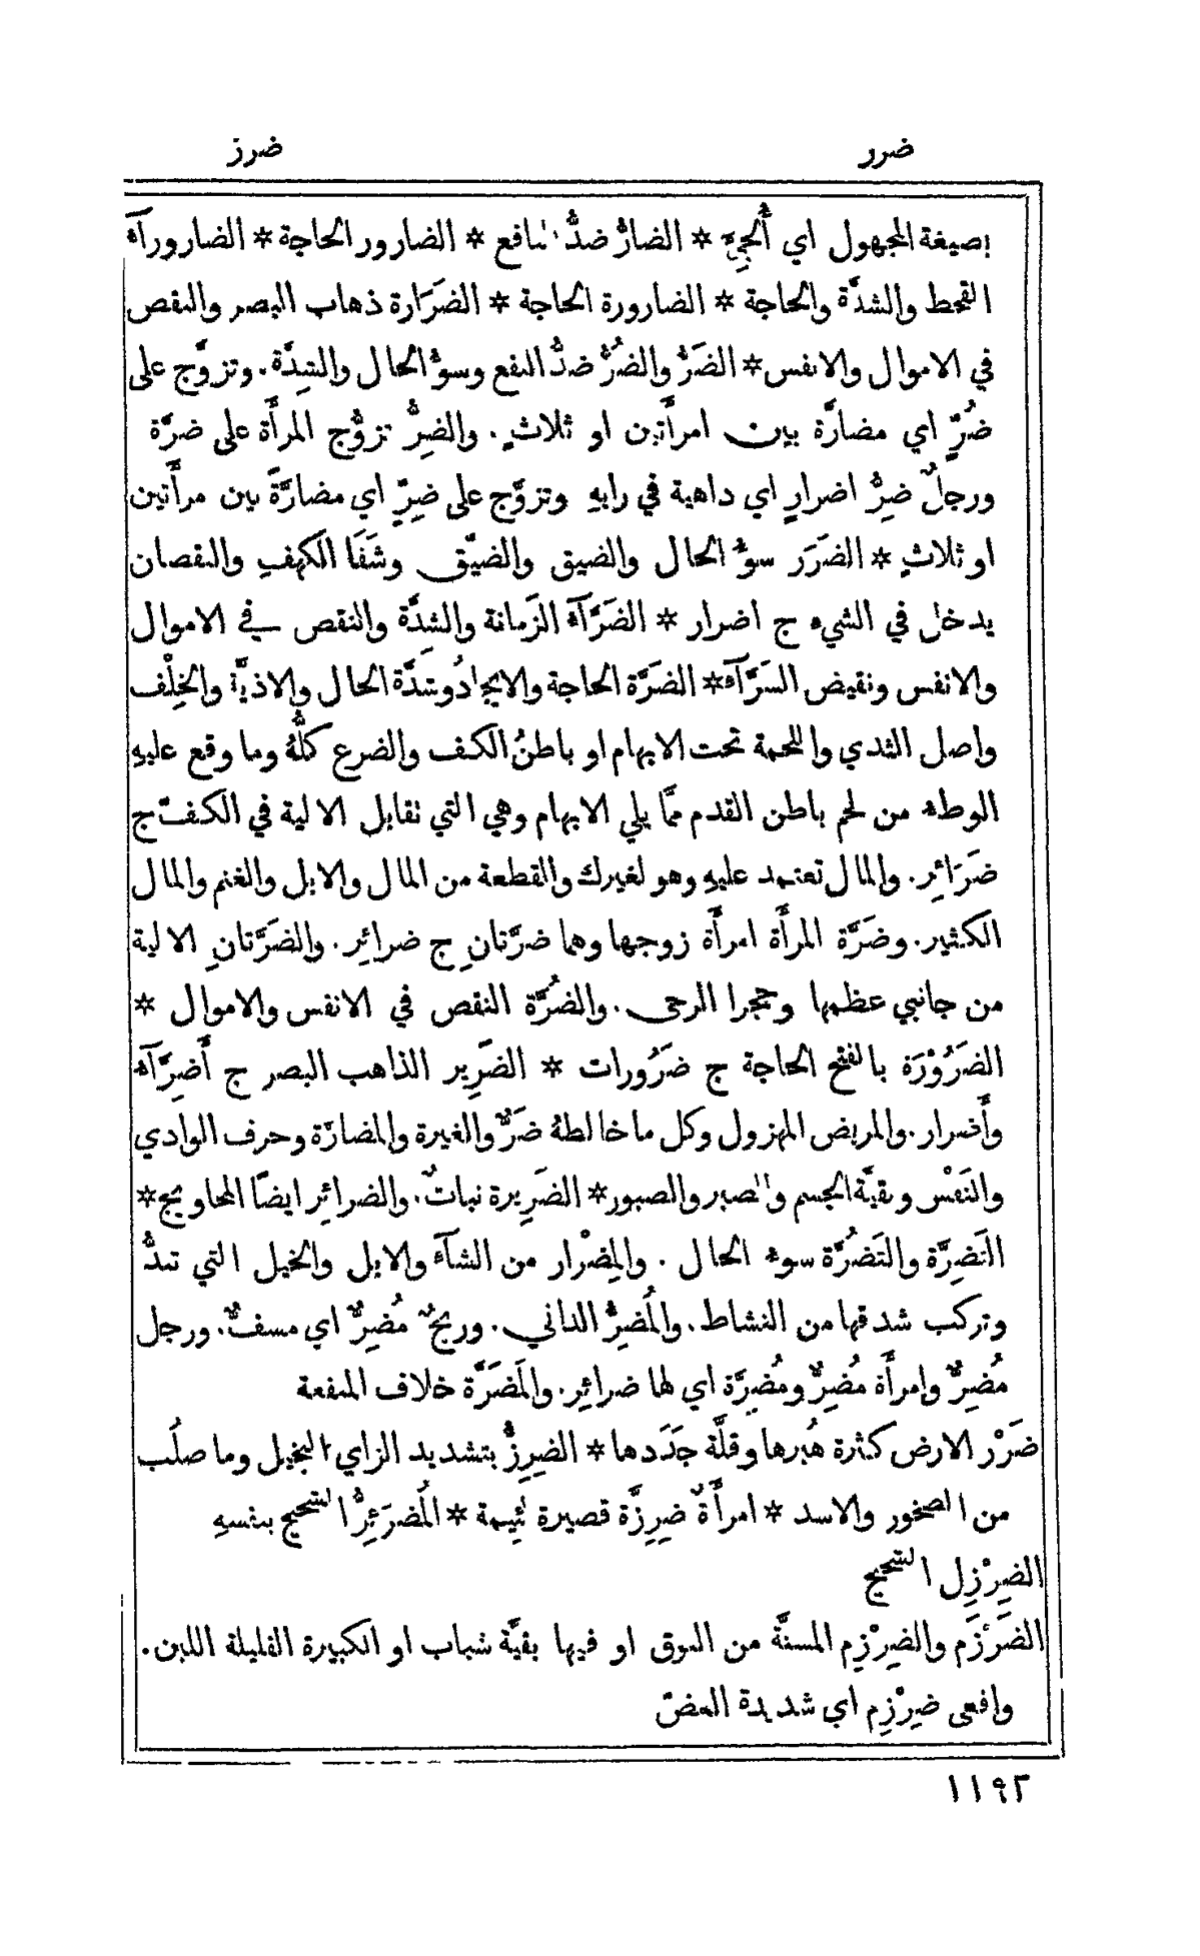 ضرر
ضرز
بصيغة المجهول اي أُلجِئَ * الضارُّ ضدُّ النافع * الضارور الحاجة * الضاروراۤء
القحط والشدَّة والحاجة * الضارورة الحاجة * الضَرَارة ذهاب البصر والنقص
في الاموال والانفس * الضَرُّ والضُرُّ ضدُّ النفع وسوءُ الحال والشدَّة. وتزوَّج على
ضُرٍّ اي مضارَّة بين امرأَتين او ثلاثٍ. والضِرُّ تزوُّج المرأَة على ضرَّة
ورجلٌ ضِرُّ اضرارٍ اي داهية في رايهِ وتزوَّج على ضِرٍّ اي مضارَّةَ بين مرأَتين
او ثلاثٍ * الضَرَر سوءُ الحال والضيق والضيِّق وشَفَا الكهفِ والنقصان
يدخل في الشيءِ ج اضرار * الضَرَّاۤء الزَمانة والشِدَّة والنقص في الاموال
والانفس ونقيض السَرَّاۤء * الضَرَّة الحاجة والايجادُ وشدَّة الحال والاذيَّة والخِلْف
واصل الثدي واللحمة تحت الابهام او باطنُ الكف والضرع كلُّهُ وما وقع عليهِ
الوطء من لحم باطن القدم ممَّا يلي الابهام وهي التي تقابل الالية في الكفّ ج
ضَرَائِر. والمال تعتمد عليهِ وهو لغيرك والقطعة من المال والابل والغنم والمال
الكثير. وضَرَّة المرأَة امرأَة زوجها وهما ضرَّتانِ ج ضرائِر. والضَرَّتانِ الالية
من جانبي عظمها وحجرا الرحى. والضُرَّة النقص في الانفس والاموال *
الضَرُوْرَة بالفتح الحاجة ج ضَرُورات * الضَرِير الذاهب البصر ج أَضِرَّاۤء
وأَضرار. والمريض المهزول وكل ما خالطهُ ضَرٌّ والغيرة والمضارّة وحرف الوادي
والنَفْس وبقيَّة الجسم والصبر والصبور * الضَرِيرة نباتٌ. والضرائِر ايضًا المحاويج *
التَضِرَّة والتَضُرَّة سوء الحال. والمِضْرار من الشاۤء والابل والخيل التي تندُّ
وتركب شدقها من النشاط. والمُضِرُّ الداني. وريحٌ مُضِرٌّ اي مسفٌّ. ورجل
مُضِرٌّ وامرأَة مُضِرٌّ ومُضِرَّة اي لها ضرائِر. والمَضَرَّة خلاف المنفعة
ضَرْز الارض كثرة هُبرها وقلَّة جَدَدها * الضِرِزُّ بتشديد الزاي البخيل وما صلُب
من الصخور والاسد * امرأَةٌ ضِرِزَّة قصيرة لئِيمة * المُضرَئِزُّ الشحيح بنفسهِ
الضِرْزِل الشحيح
الضَرْزَم والضِرْزِم المسنَّة من النوق او فيها بقيَّة شباب او الكبيرة القليلة اللبن.
وافعى ضِرْزِم اي شديدة العضّ
١١٩٢